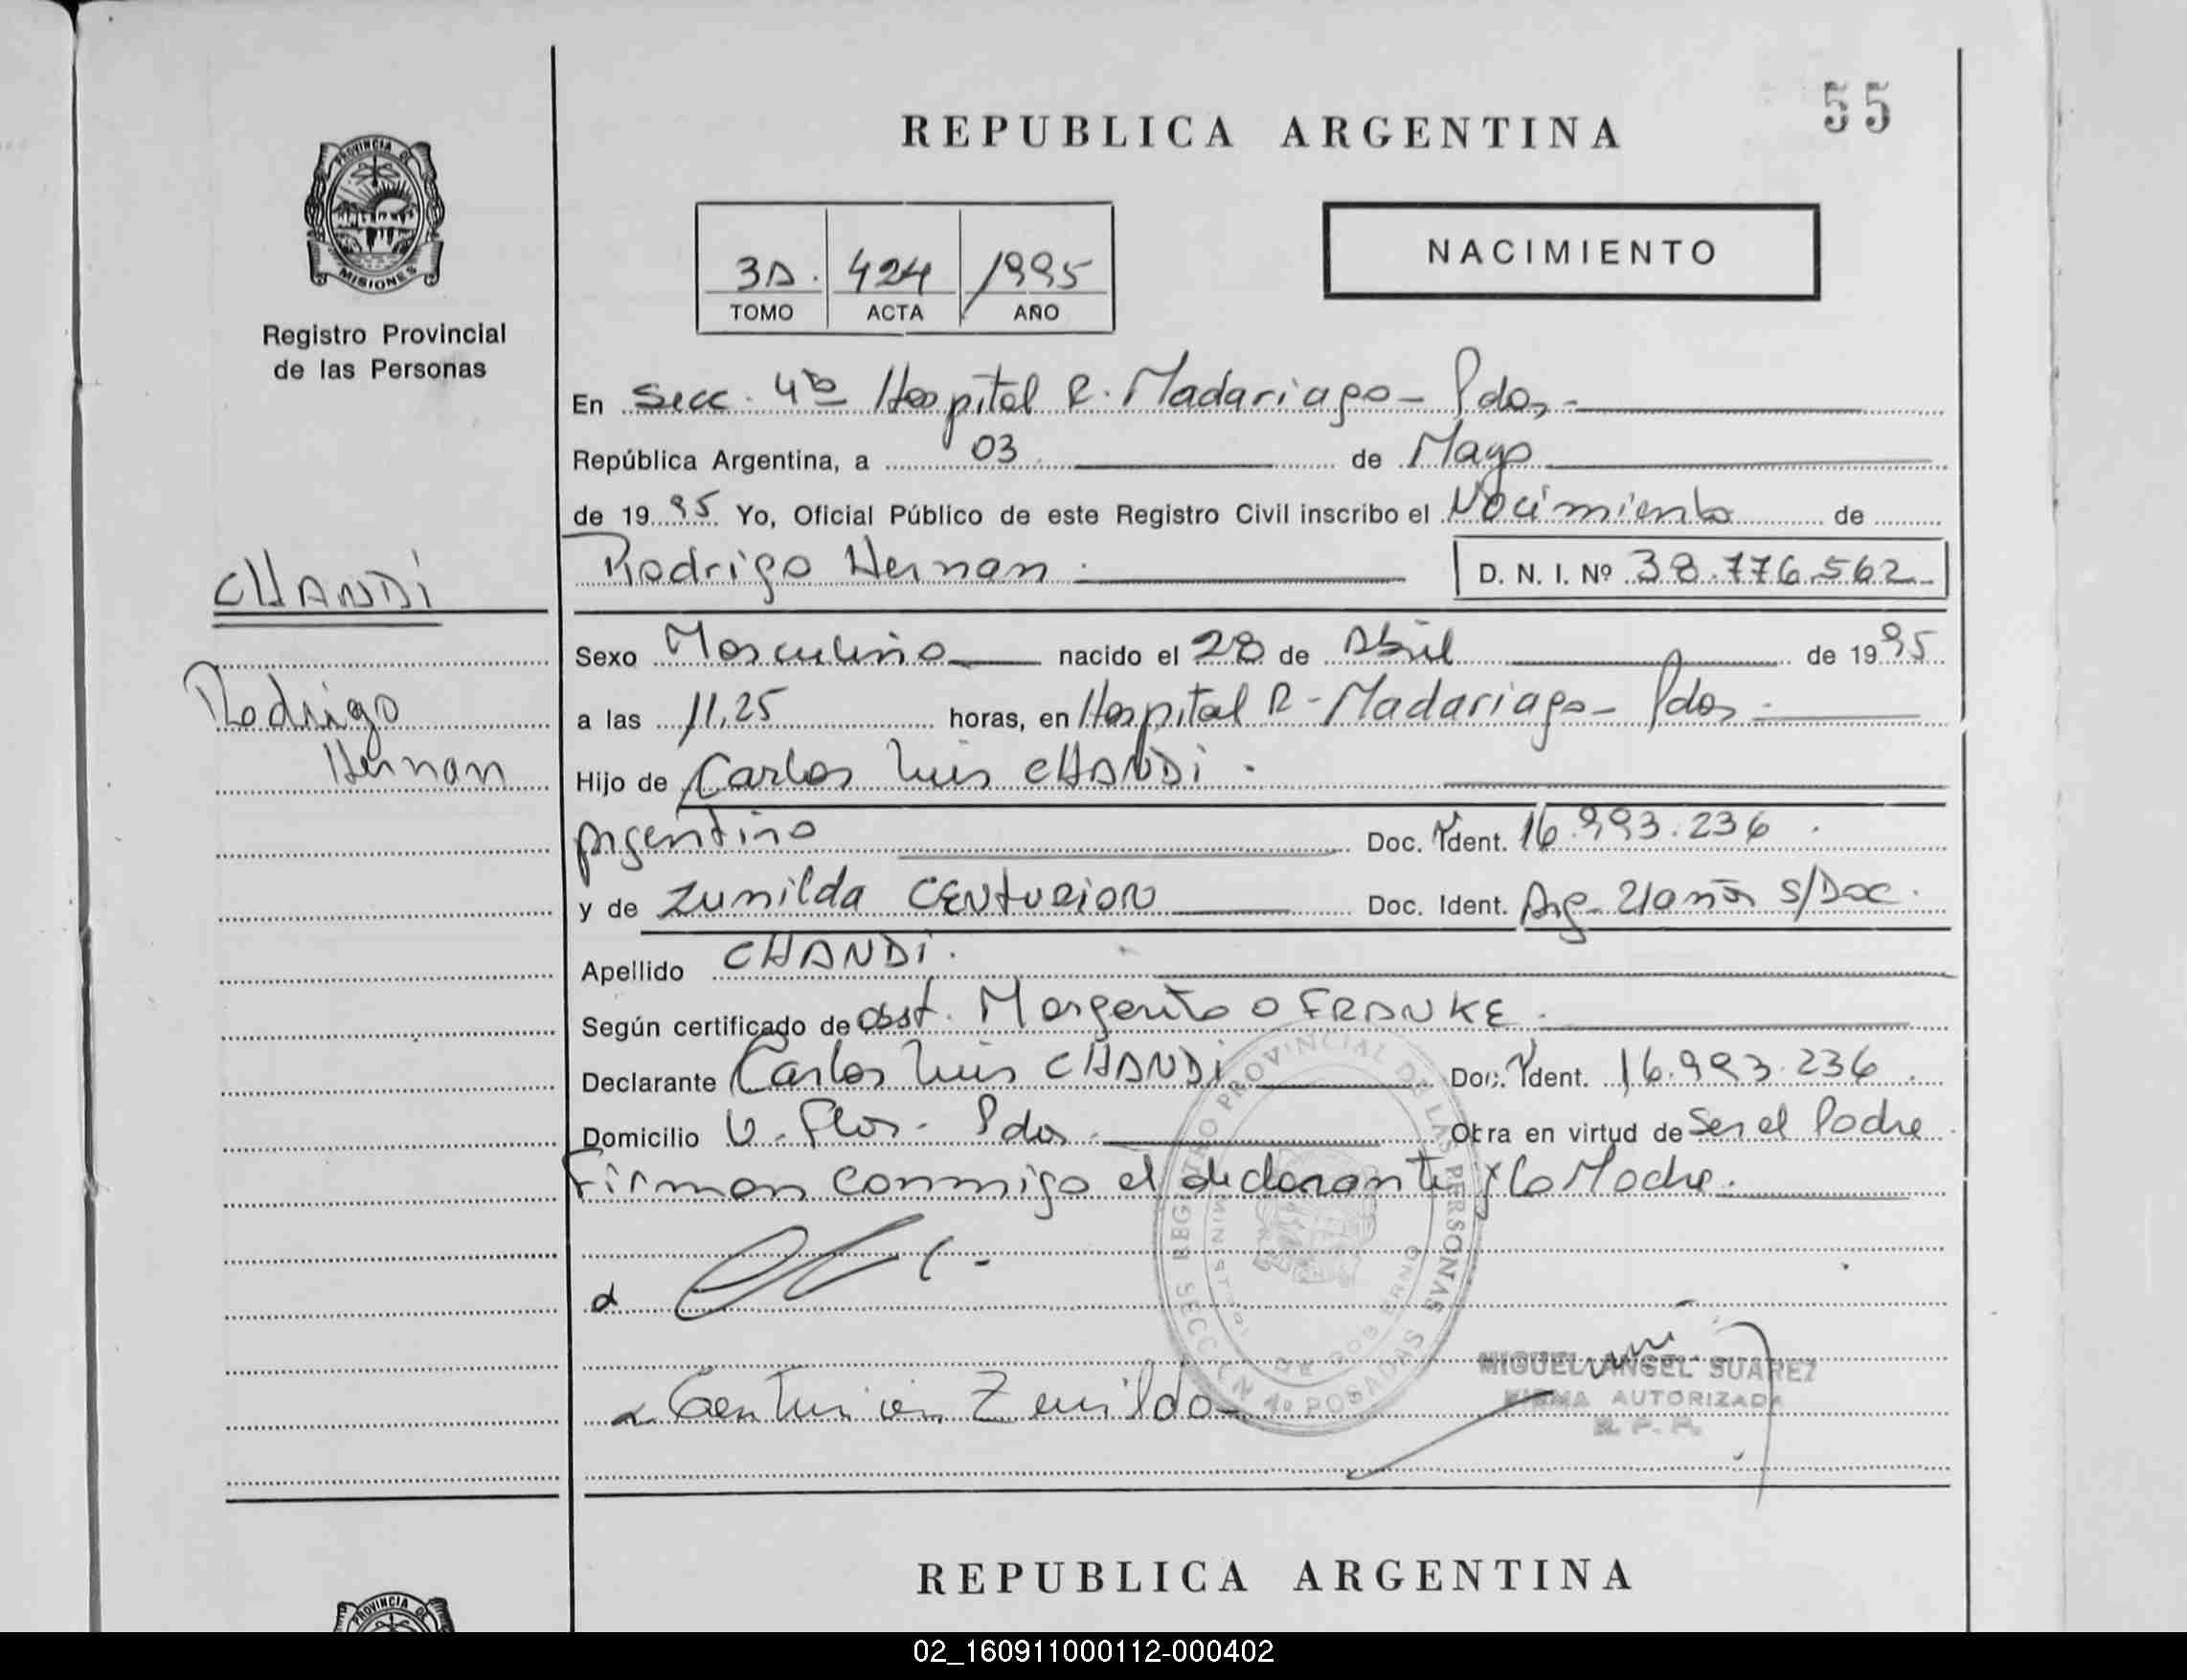 55
REPUBLICA ARGENTINA
PROVINCIA DE
MISIONES
Registro Provincial
de las Personas
3A. 424 1995
TOMO ACTA AÑO
NACIMIENTO
En Secc. 4ta Hospital R. Madariaga - Pdas.-
República Argentina, a 03 de Mayo
de 1995 Yo, Oficial Público de este Registro Civil inscribo el Nacimiento de
Rodrigo Hernan D. N. I. Nº 38.776.562
CHANDI
Rodrigo
Hernan
Sexo Masculino nacido el 28 de Abril de 1995
a las 11,25 horas, en Hospital R - Madariaga - Pdas -
Hijo de Carlos Luis CHANDI.
Argentino Doc. Ident. 16.993.236.
y de Zunilda CENTURION Doc. Ident. Arg. 21 años S/Doc.
Apellido CHANDI.
Según certificado de obst. Margarita O FRANKE.
Declarante Carlos Luis CHANDI Doc. Ident. 16.993.236.
Domicilio V. Flor. Pdas. Obra en virtud de Ser el Padre
Firman conmigo el declarante y la Madre.
REGISTRO PROVINCIAL DE LAS PERSONAS
POSADAS
MIGUEL ANGEL SUAREZ
FIRMA AUTORIZADA
R. P. P.
Centurion Zunilda
REPUBLICA ARGENTINA
PROVINCIA DE
02_160911000112-000402